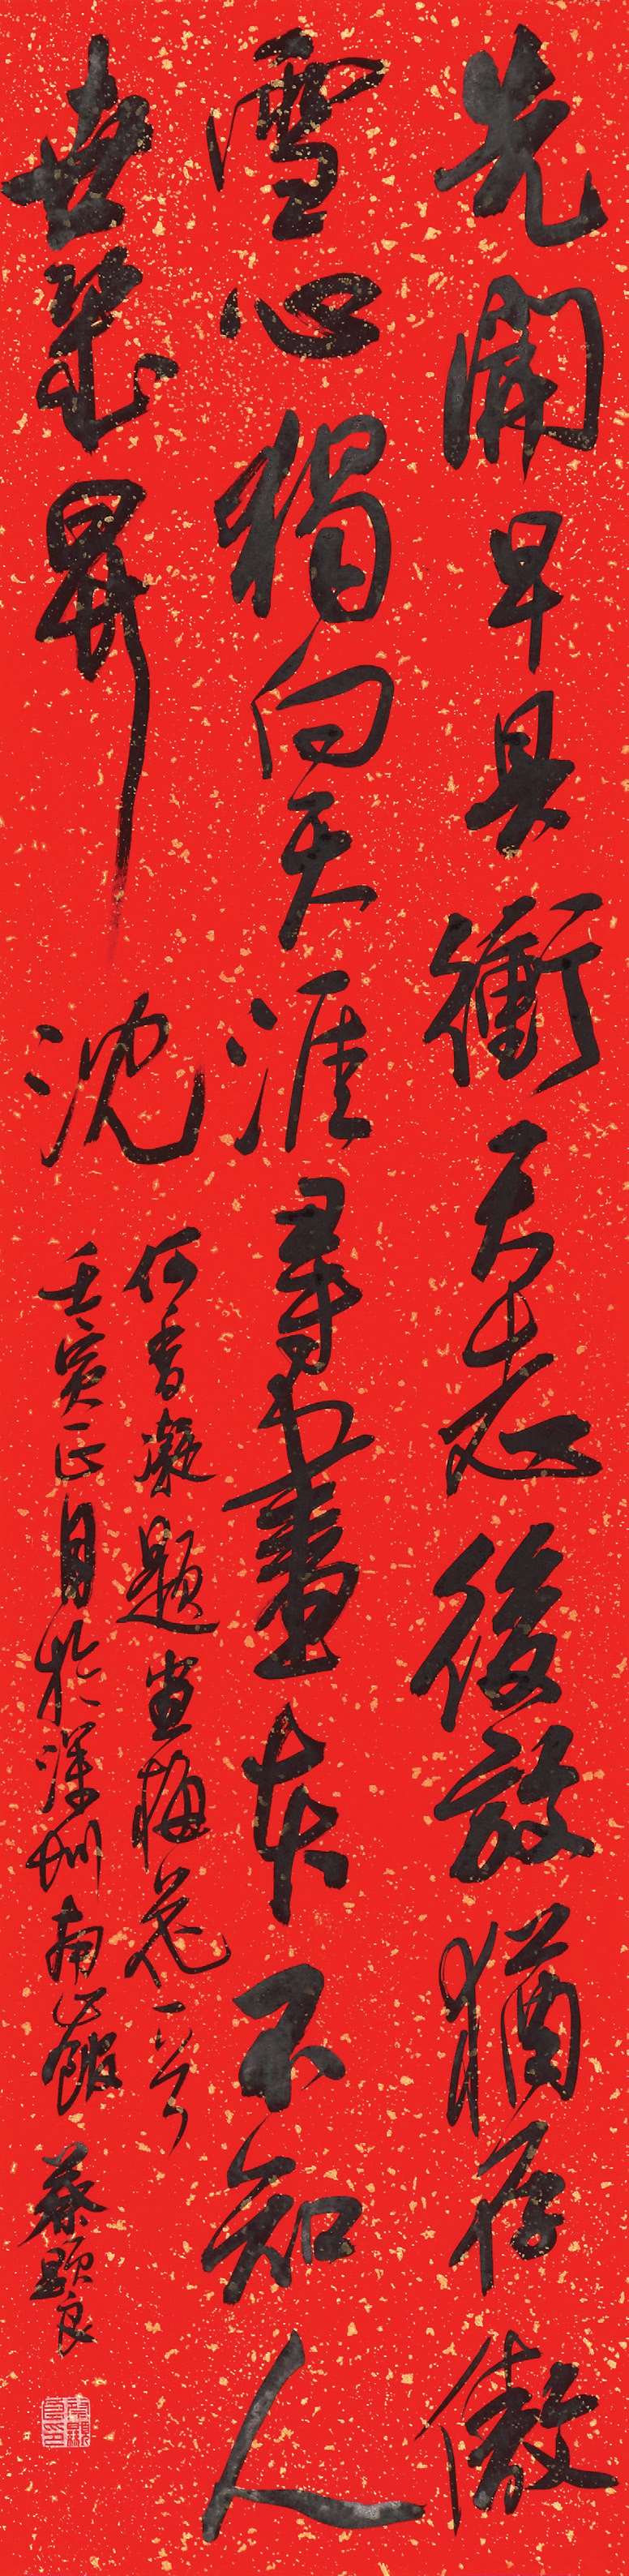 先開早具衝天志後放猶存傲
雪心獨向天涯尋畫本不知人
世幾昇沈
何香凝題畫梅花一首
壬寅正月於深圳南山 蔡顯良